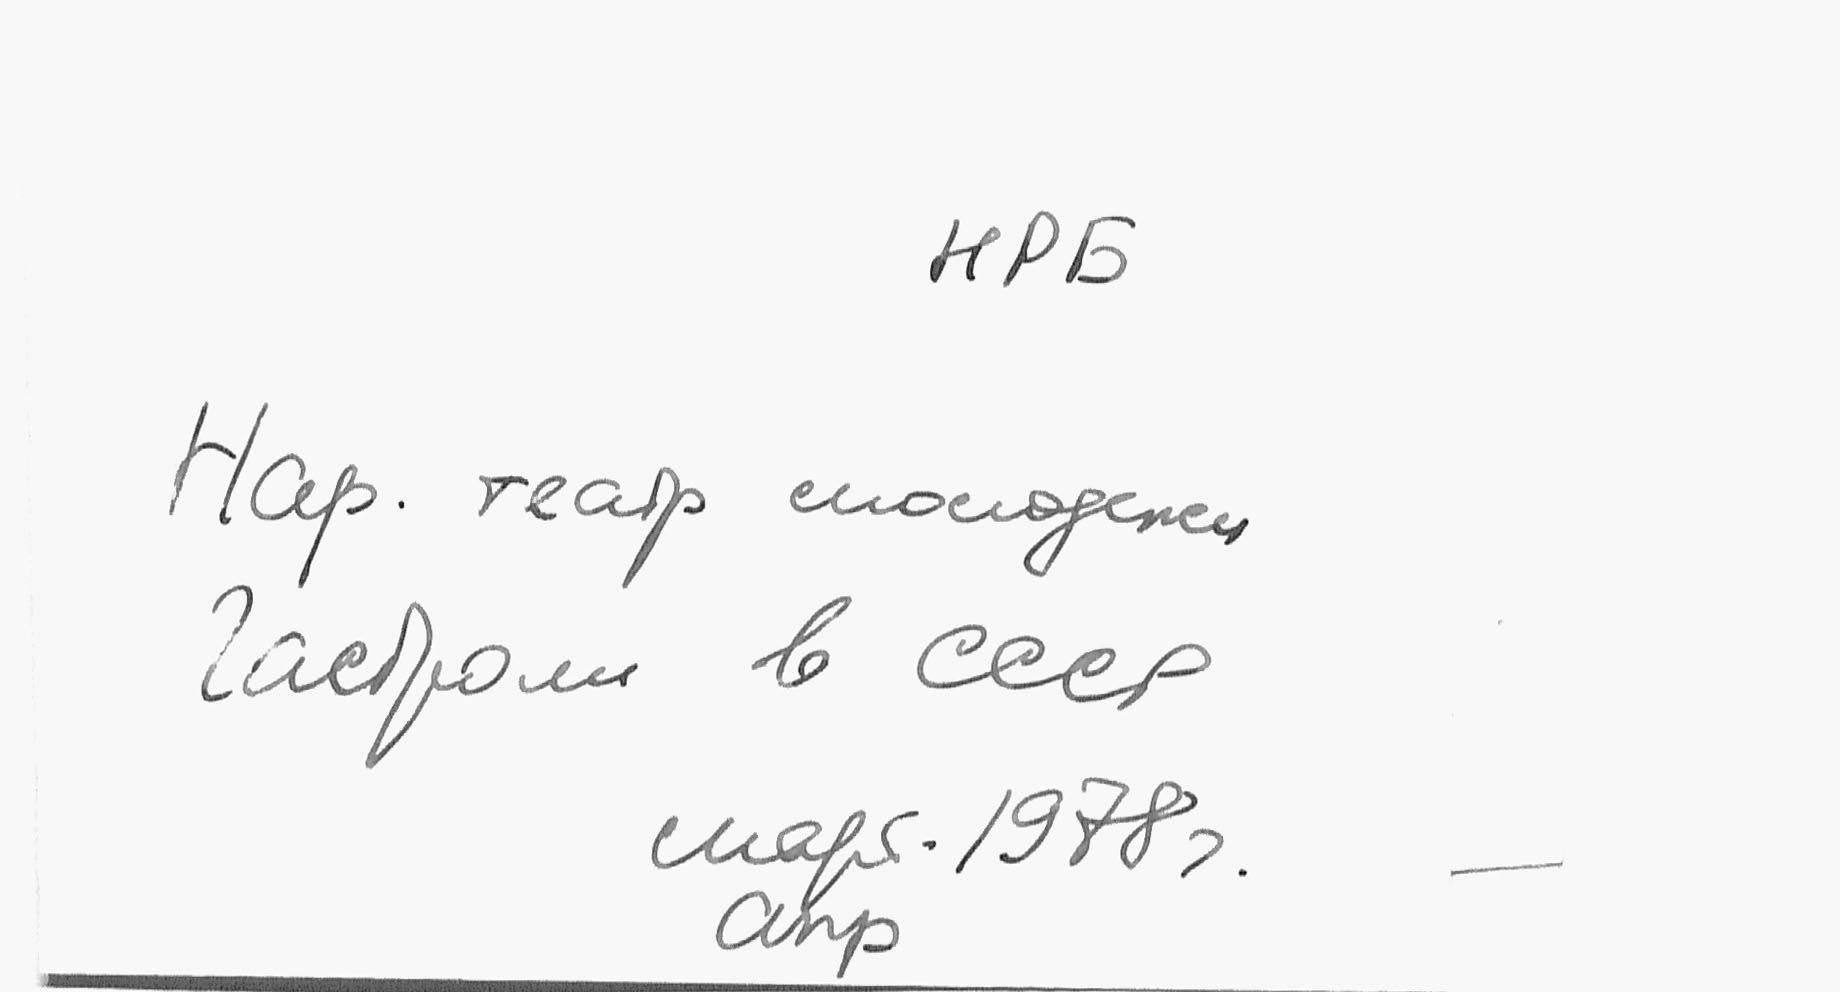 НРБ
Нар. театр молодежи
Гастроли в СССР
март. 1978 г.
апр